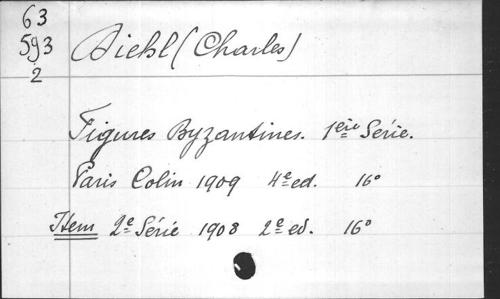 63
593
2
Diehl (Charles)
Figures Byzantines. 1ère Série.
Paris Colin 1909 4e ed. 16°
Item 2e Série 1908 2e ed. 16°